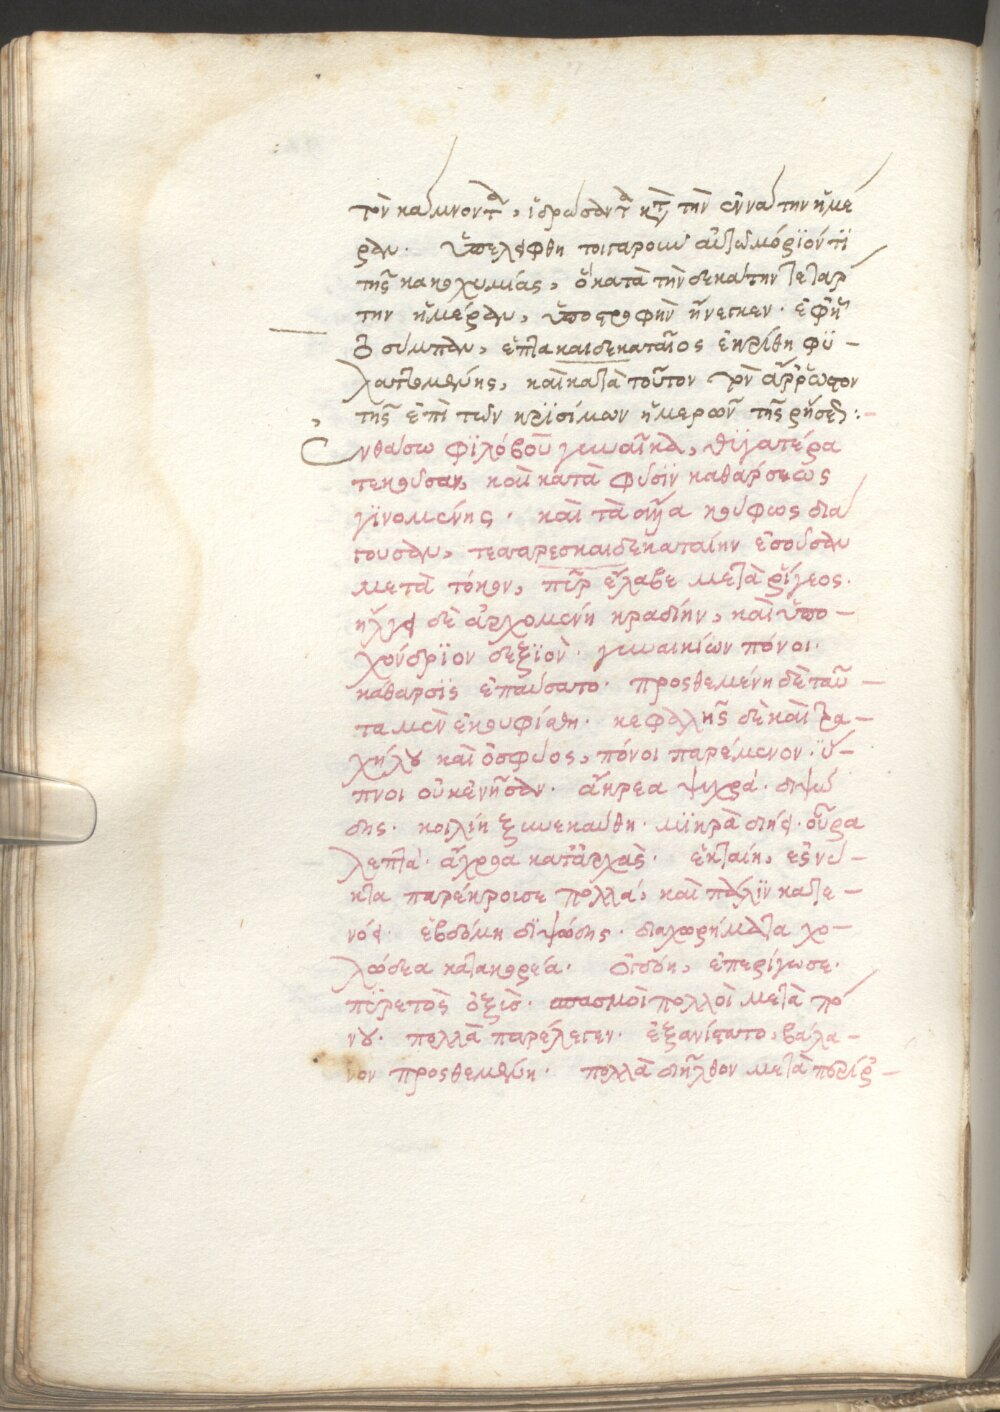 τὸν κάμνοντα, ἱδρώσαντα κατὰ τὴν ἐννάτην ἡμέ
ραν. ὑπελείφθη τοιγαροῦν αὐτῶ μόριόν τι
τῆς κακοχυμίας, ὃ κατὰ τὴν δεκάτην τετάρ
την ἡμέραν, ὑποστροφὴν ἤνεγκεν. ἐφ' ἧ
τὸ σύμπαν, ἑπτακαιδεκαταῖος ἐκρίθη φυ –
λαττομένης, καὶ κατὰ τοῦτον τὸν ἄρρωστον
τῆς ἐπὶ τῶν κρισίμων ἡμερῶν τηρήσεως :–
Ἐν θάσω φιλόβου γυναῖκα, θυγατέρα
τεκοῦσαν, καὶ κατὰ φύσιν καθάρσεως
γινομένης. καὶ τὰ ἄλλα κούφως διά
γουσαν, τεσσαρεσκαιδεκαταίην ἐοῦσαν
μετὰ τόκον, πῦρ ἔλαβε μετὰ ῥίγεος.
ἤλγει δὲ ἀρχομένη κραδίην, καὶ ὑπο –
χόνδριον δεξιὸν. γυναικίων πόνοι.
κάθαρσις ἐπαύσατο. προσθεμένη δὲ ταῦ –
τα μὲν ἐκουφίσθη. κεφαλῆς δὲ καὶ τρα –
χήλου καὶ ὀσφύος, πόνοι παρέμενον. ὕ –
πνοι οὐκ ἐνῆσαν. ἄκρεα ψυχρά. διψώ
δης. κοιλίη ξυνεκαύθη. μικρὰ διήει. οὖρα
λεπτά. ἄχροα κατ' ἀρχὰς. ἑκταίη, ἐς νύ –
κτα παρέκρουσε πολλά, καὶ πάλιν κατε –
νόει. ἑβδόμη διψώδης. διαχωρήματα χο –
λώδεα κατακορέα. ὀγδόη, ἐπερίγωσε.
πυρετὸς ὀξὺς. σπασμοὶ πολλοὶ μετὰ πό
νου. πολλὰ παρέλεγεν. ἐξανίστατο, βάλα –
νον προσθεμένη. πολλὰ διῆλθον μετὰ περιρ –